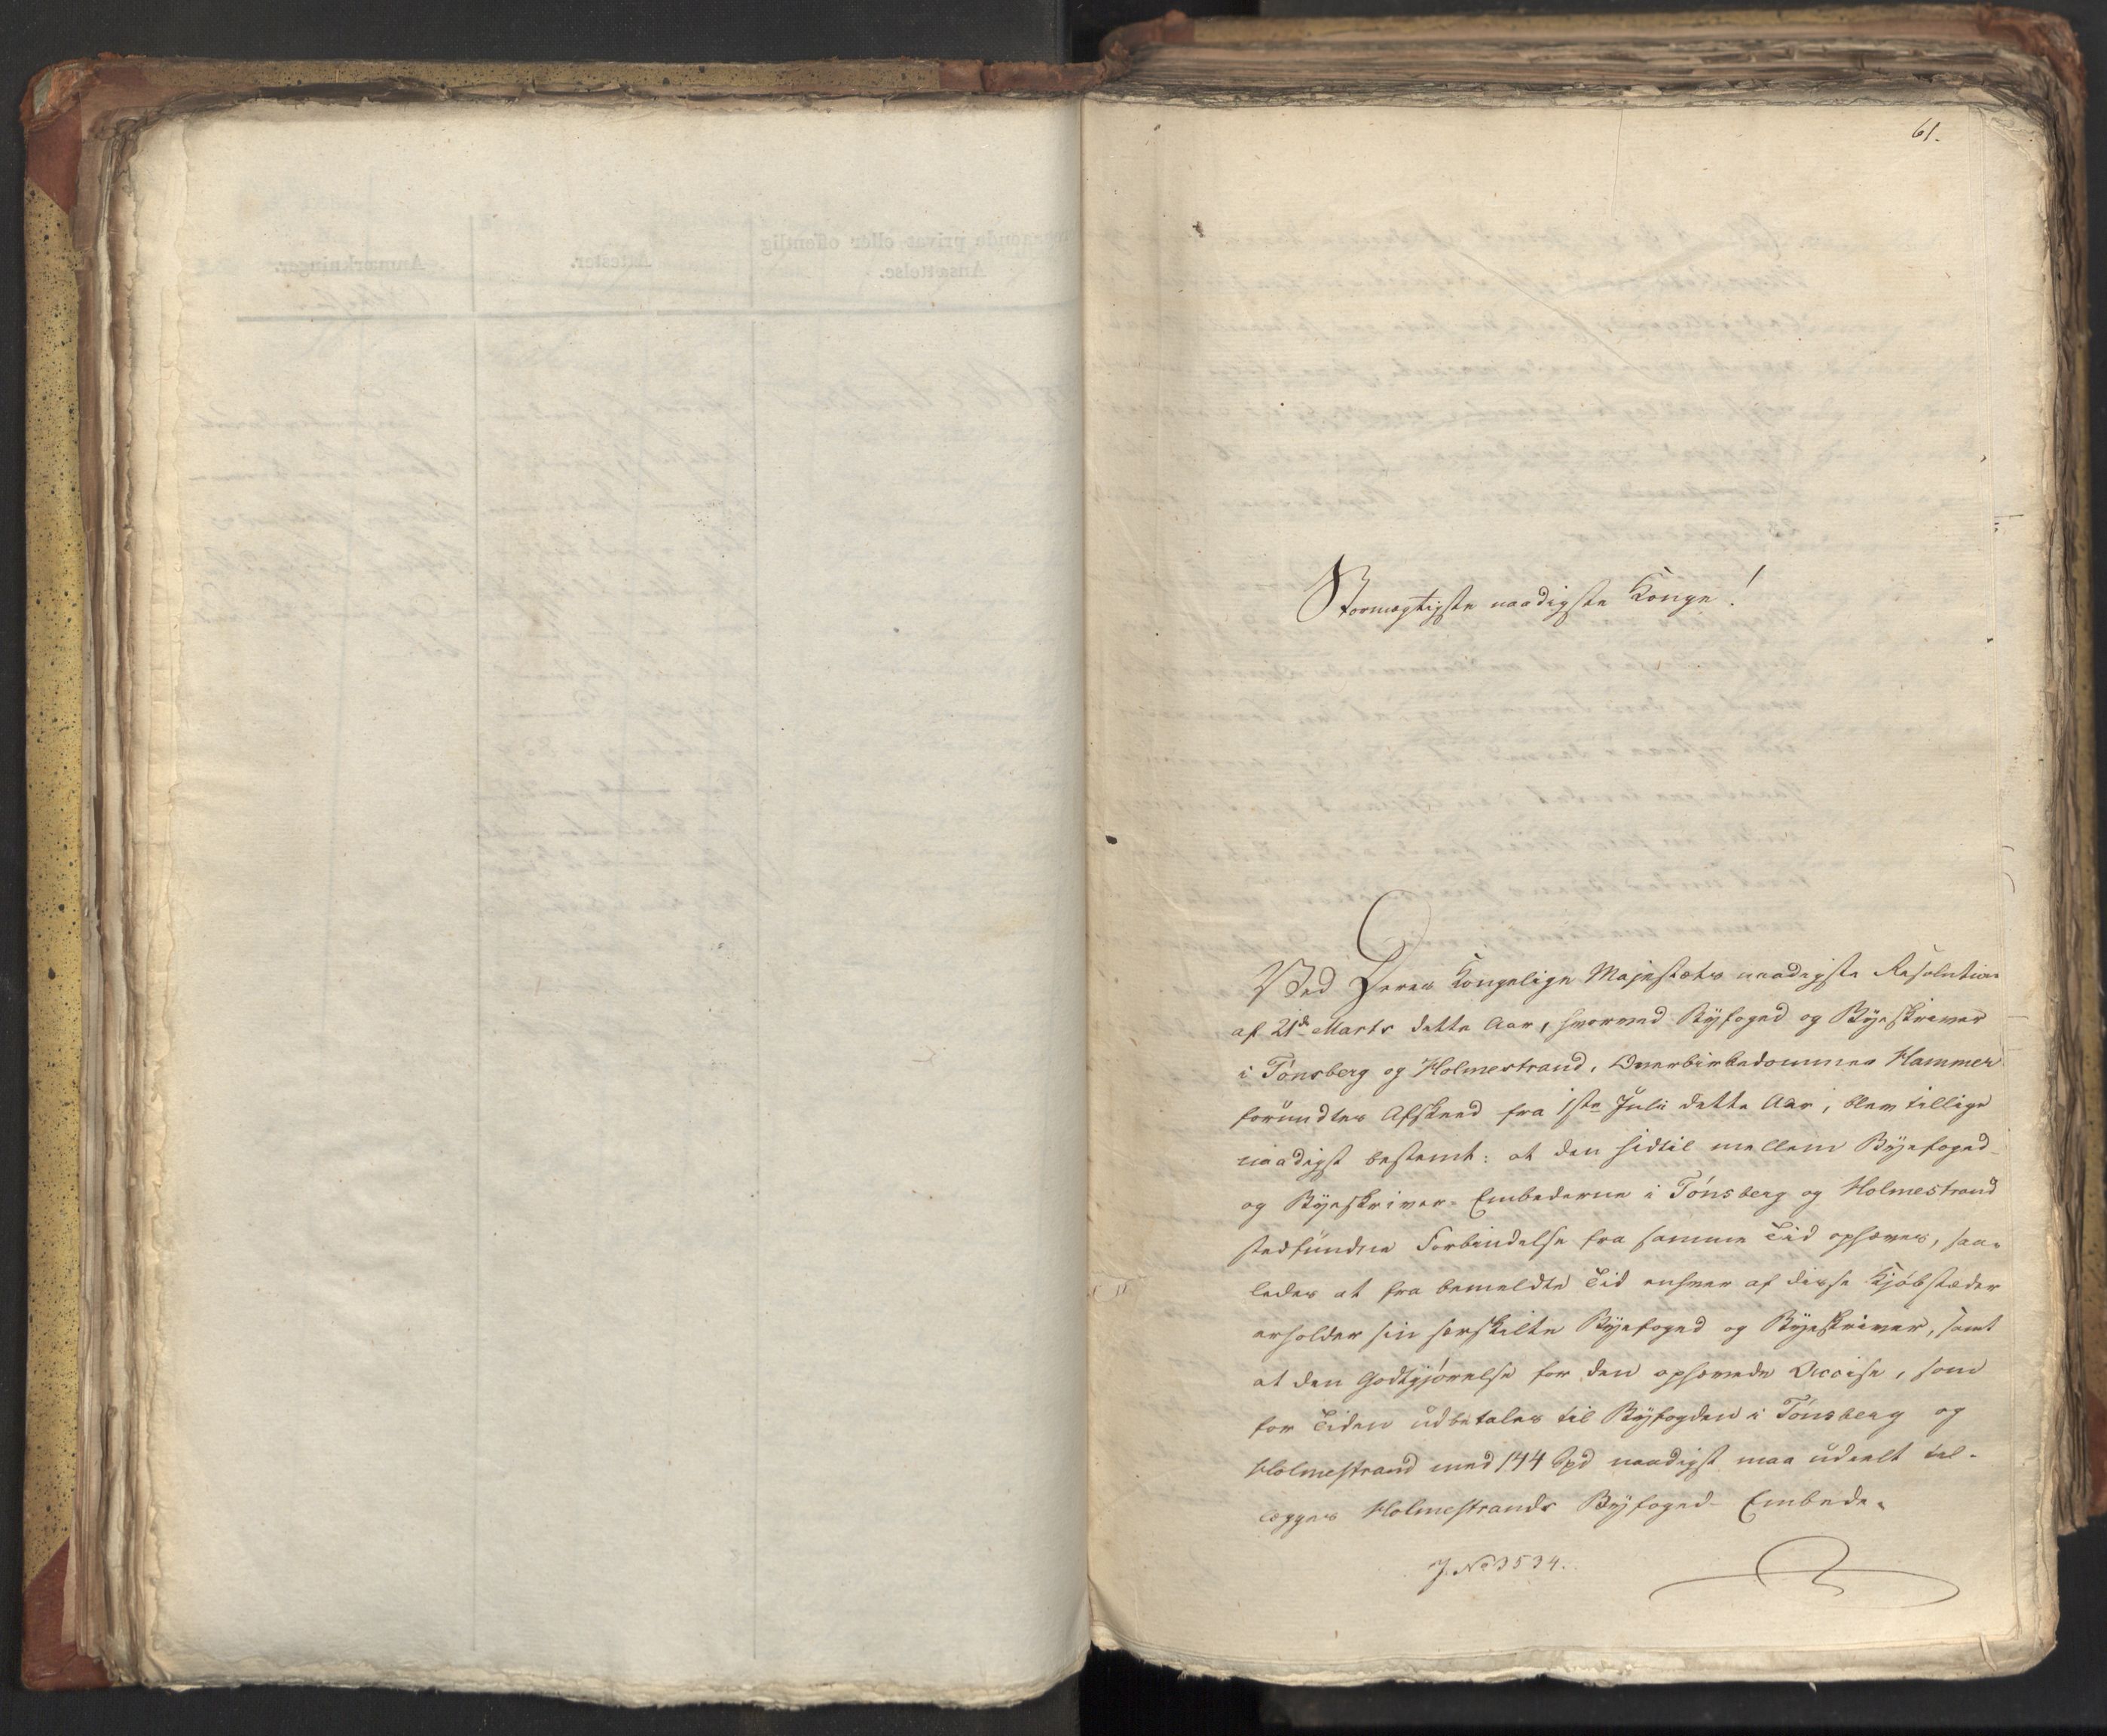 61.
Stormægtigste naadigste Konge!
Ved Deres Kongelige Majestæts naadigste Resolution
af 21de Marts dette Aar, hvorved Byfoged og Byeskriver
i Tönsberg og Holmestrand, Overbirkedommer Hammer
forundtes Afskeed fra 1ste Julii dette Aar, blev tillige
naadigst bestemt: at den hidtil mellem Byefoged-
og Byeskriver-Embederne i Tönsberg og Holmestrand
stedfundne Forbindelse fra samme Tid ophæves, saa-
ledes at fra bemeldte Tid enhver af disse Kjöbstæder
erholder sin særskilte Byefoged og Byeskriver, samt
at den Godtgjörelse for den ophævede Accise, som
for Tiden udbetales til Byfogden i Tönsberg og
Holmestrand med 144 Spd naadigst maa udeelt til-
lægges Holmestrands Byfoged-Embede.
J. No 3534.